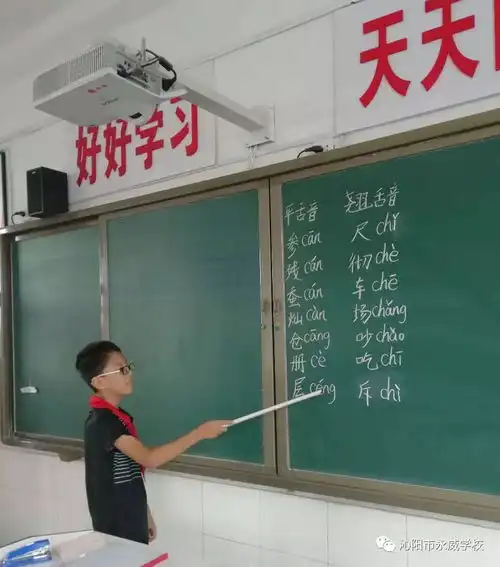 好好学习
天天
平舌音 翘舌音
参 cān 尺 chǐ
残 cán 彻 chè
蚕 cán 车 chē
灿 càn 场 chǎng
仓 cāng 吵 chǎo
册 cè 吃 chī
层 céng 斥 chì
沁阳市永威学校